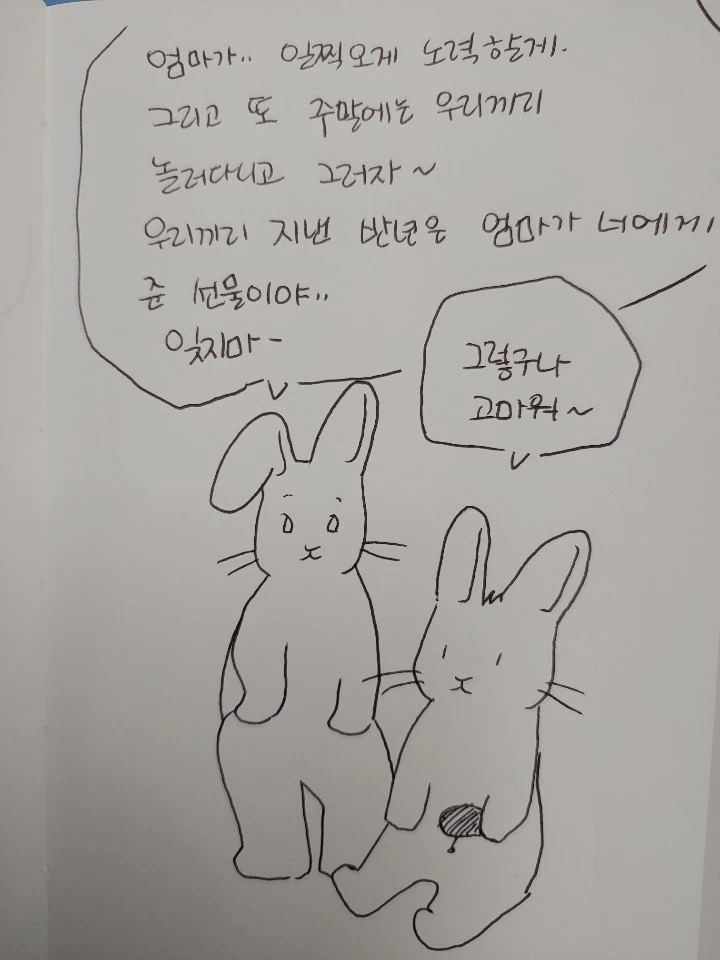 엄마가.. 일찍오게 노력할게.
그리고 또 주말에는 우리끼리
놀러다니고 그러자~
우리끼리 지낸 반년은 엄마가 너에게
준 선물이야..
잊지마-
그렇구나
고마워~